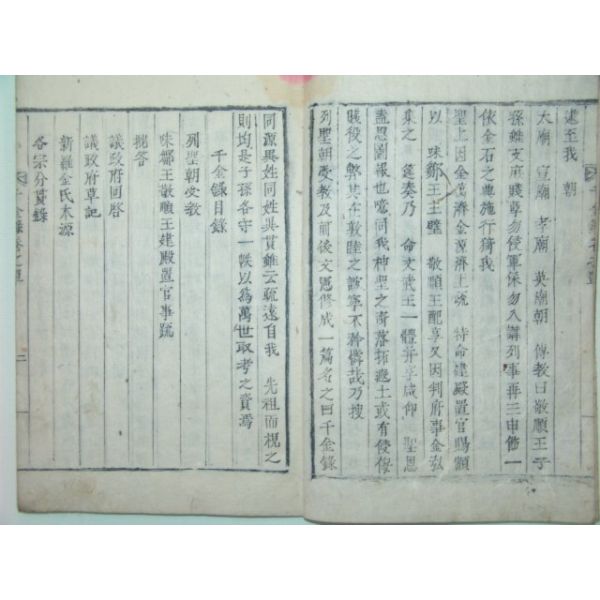 逮至我 朝
太廟 宣廟 孝廟 英廟朝 傳敎曰敬順王子
孫雖支庶賤孽勿侵軍保勿入講列事再三申飭一
依金石之典施行猗我
聖上因金 濟金源濟上疏 特命建殿置官賜額
以味鄒王主壁 敬順王配享又因判府事金弘
集之 筵奏乃 命文武王一體幷享咸仰 聖恩
盖思圖報也噫同我神聖之裔落拓遐土或有侵保
賤役之弊其在敦睦之誼寧不矜髒哉乃搜
列聖朝受敎及前後文憲修成一篇名之曰千金錄
同源異姓同姓異貫雖云疏遠自我 先祖而視之
則均是子孫各守一帙以爲萬世取考之資焉
千金錄目錄
列聖朝受敎
味鄒王敬順王建殿置官事疏
批答
議政府回啓
議政府草記
新羅金氏木源
各宗分貫錄
千金錄卷之單
二